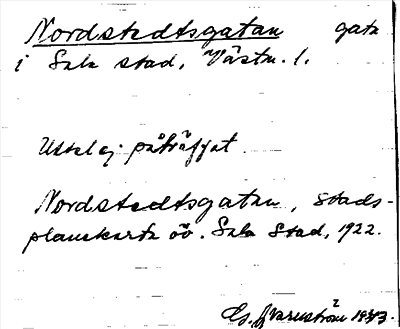 Nordstedtsgatan gata
i Sala stad, Västm. l.
Uttal ej påträffat.
Nordstedtsgatan, stads-
planekarta öv. Sala Stad, 1922.
1943.